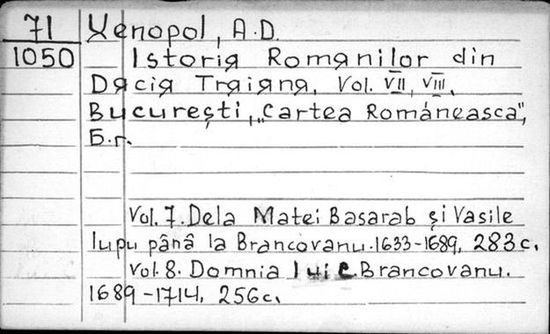 71 Xenopol, A.D.
1050 Istoria Romanilor din
Dacia Traiana, Vol. VII, VIII,
Bucureşti, „Cartea Românească",
Б.г.
Vol. 7. Dela Matei Basarab şi Vasile
lupu până la Brancovanu. 1633-1689, 283 c.
Vol. 8. Domnia lui C. Brancovanu.
1689-1714, 256 c.